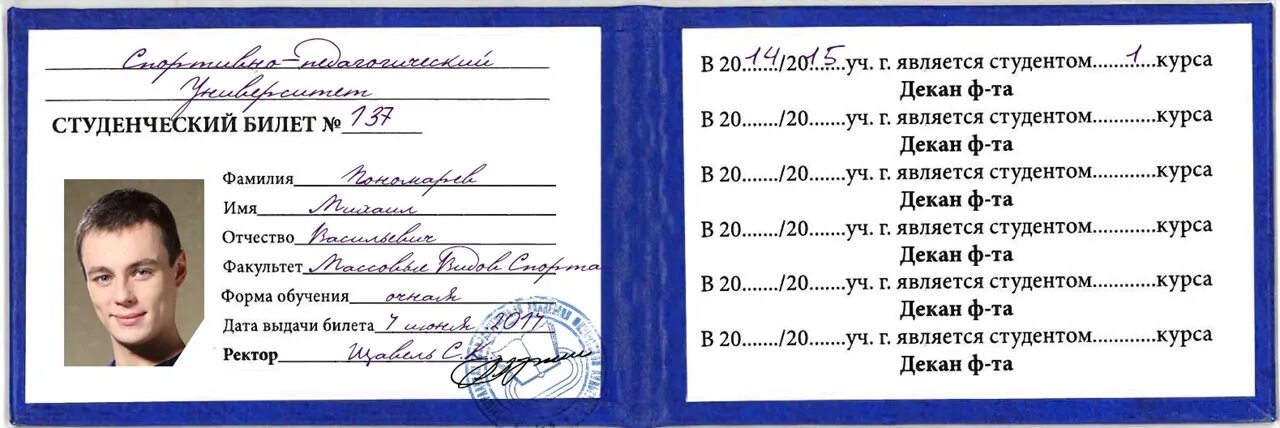 Спортивно-педагогический
Университет
СТУДЕНЧЕСКИЙ БИЛЕТ № 137
Фамилия Пономарев
Имя Михаил
Отчество Васильевич
Факультет Массовых Видов Спорта
Форма обучения очная
Дата выдачи билета 7 июня 2014
Ректор Щавель С.К.
В 2014/2015 уч. г. является студентом 1 курса
Декан ф-та
В 20......./20.......уч. г. является студентом...........курса
Декан ф-та
В 20......./20.......уч. г. является студентом...........курса
Декан ф-та
В 20......./20.......уч. г. является студентом...........курса
Декан ф-та
В 20......./20.......уч. г. является студентом...........курса
Декан ф-та
В 20......./20.......уч. г. является студентом...........курса
Декан ф-та